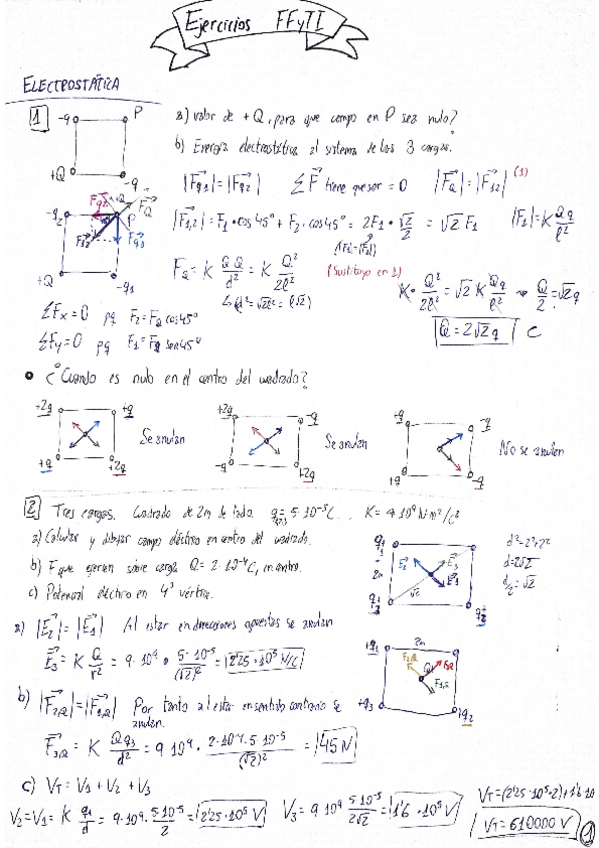 Ejercicios FFyTI
ELECTROSTÁTICA
1
-q P
+Q -q
a) valor de +Q, para que campo en P sea nulo?
b) Energía electrostática al sistema de las 3 cargas.
|Fq1| = |Fq2| ΣF tiene que ser = 0 |FQ| = |F1,2| (1)
-q2 P
+Q -q1
|F1,2| = F1 · cos45° + F2 · cos45° = 2F1 · √2/2 = √2 F1 |F1| = K Qq/ℓ²
(|F1| = |F2|)
(Sustituyo en 1)
FQ = K QQ/d² = K Q²/2ℓ²
K · Q²/2ℓ² = √2 K Qq/ℓ² → Q/2 = √2q
Q = 2√2q C
ΣFx = 0 pq F2 = FQ cos45°
ΣFy = 0 pq F1 = FQ sen45°
¿Cuándo es nulo en el centro del cuadrado?
+2q +q
+q +2q
Se anulan
+2q -q
-q +2q
Se anulan
-q -q
+q -q
No se anulan
2 Tres cargas. Cuadrado de 2m de lado. q1,2,3 = 5·10⁻⁵ C. K = 9·10⁹ N·m²/C²
a) Calcular y dibujar campo eléctrico en centro del cuadrado.
b) F que ejercen sobre carga Q = 2·10⁻⁴ C, en centro.
c) Potencial eléctrico en 4º vértice.
d² = 2²+2²
d = 2√2
d/2 = √2
a) |E2| = |E1| Al estar en direcciones opuestas se anulan
E3 = K Q/r² = 9·10⁹ · 5·10⁻⁵/(√2)² = 2'25·10⁵ N/C
+q1 2m
+q3 +q2
b) |F2,Q| = |F1,Q| Por tanto al estar en sentido contrario se
anulan.
F3,Q = K Qq3/d² = 9·10⁹ · 2·10⁻⁴·5·10⁻⁵/(√2)² = 45 N
c) VT = V1 + V2 + V3
V2 = V1 = K q1/d = 9·10⁹ · 5·10⁻⁵/2 = 2'25·10⁵ V V3 = 9·10⁹ 5·10⁻⁵/2√2 = 1'6·10⁵ V
VT = (2'25·10⁵·2)+1'6·10
VT = 610000 V
1